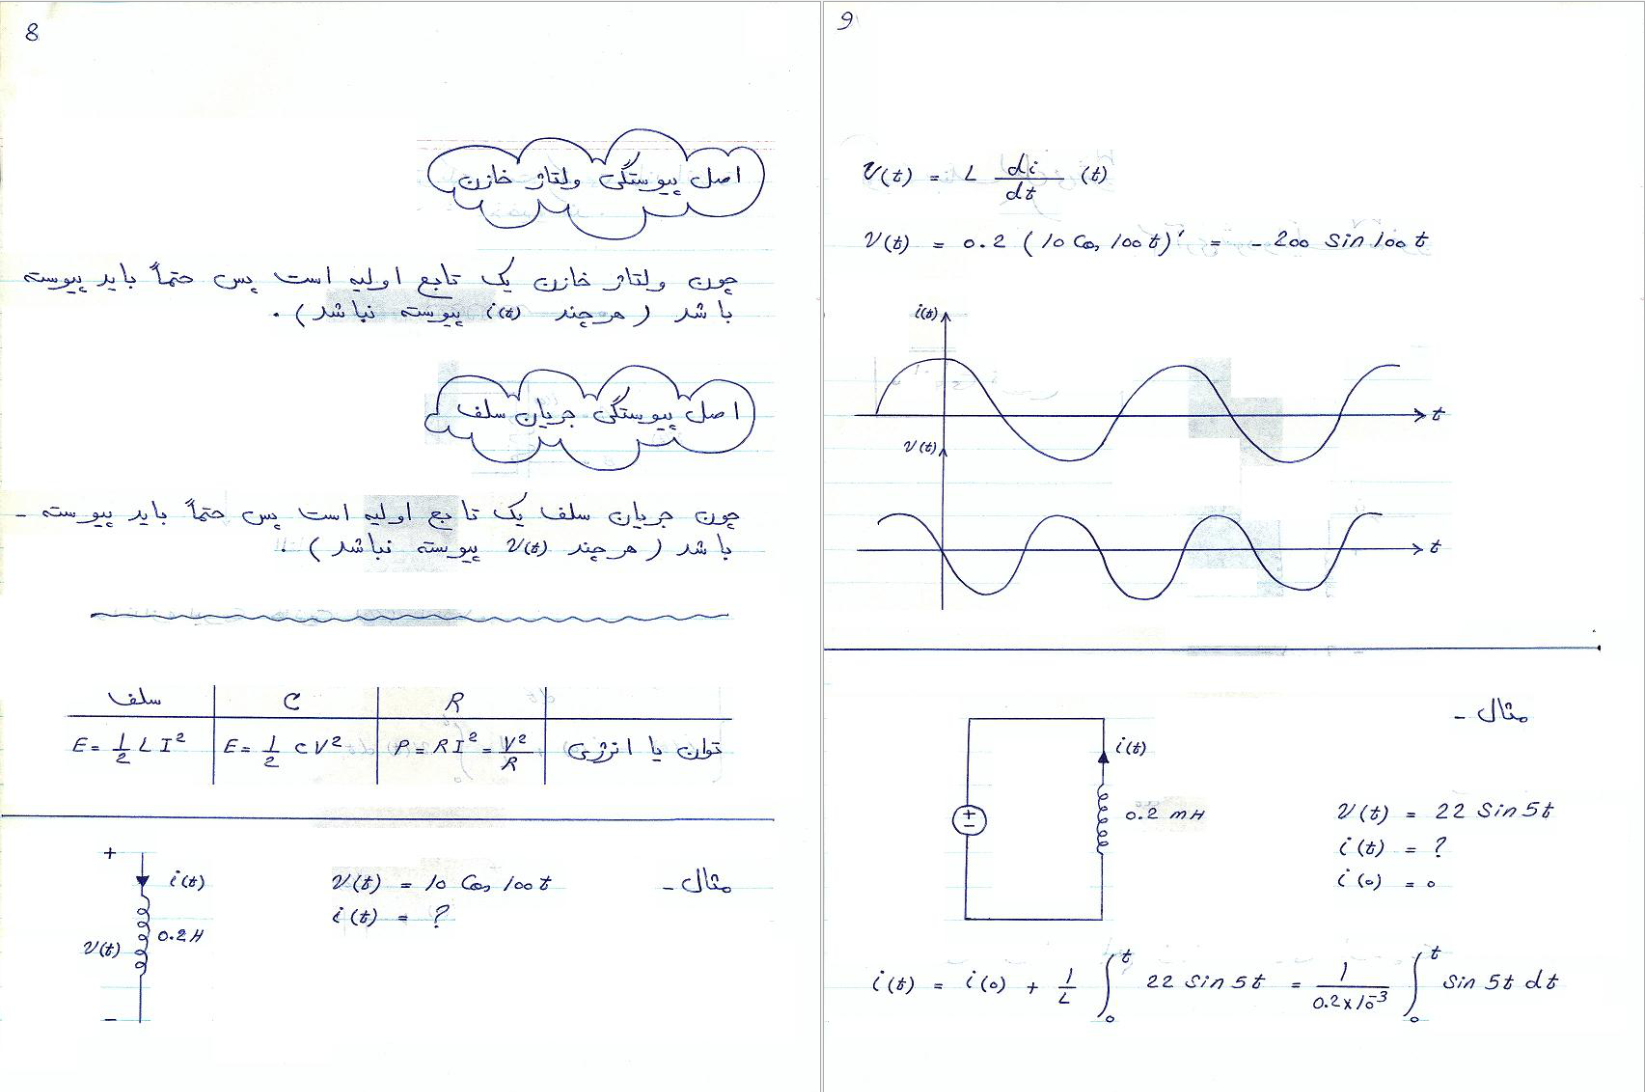 8
اصل پیوستگی ولتاژ خازن
چون ولتاژ خازن یک تابع اولیه است پس حتماً باید پیوسته
باشد (هرچند i(t) پیوسته نباشد).
اصل پیوستگی جریان سلف
چون جریان سلف یک تابع اولیه است پس حتماً باید پیوسته -
باشد (هرچند v(t) پیوسته نباشد).
سلف C R
توان یا انرژی P = RI² = V²/R E = 1/2 CV² E = 1/2 LI²
مثال -
v(t) = 10 Cos 100t
i(t) = ?
+
i(t)
v(t)
0.2H
-
9
v(t) = L di/dt (t)
v(t) = 0.2 (10 Cos 100t)' = - 200 sin 100t
i(t)
t
v(t)
t
مثال -
+
-
i(t)
0.2 mH
v(t) = 22 Sin 5t
i(t) = ?
i(0) = 0
i(t) = i(0) + 1/L ∫₀ᵗ 22 Sin 5t = 1/(0.2×10⁻³) ∫₀ᵗ Sin 5t dt